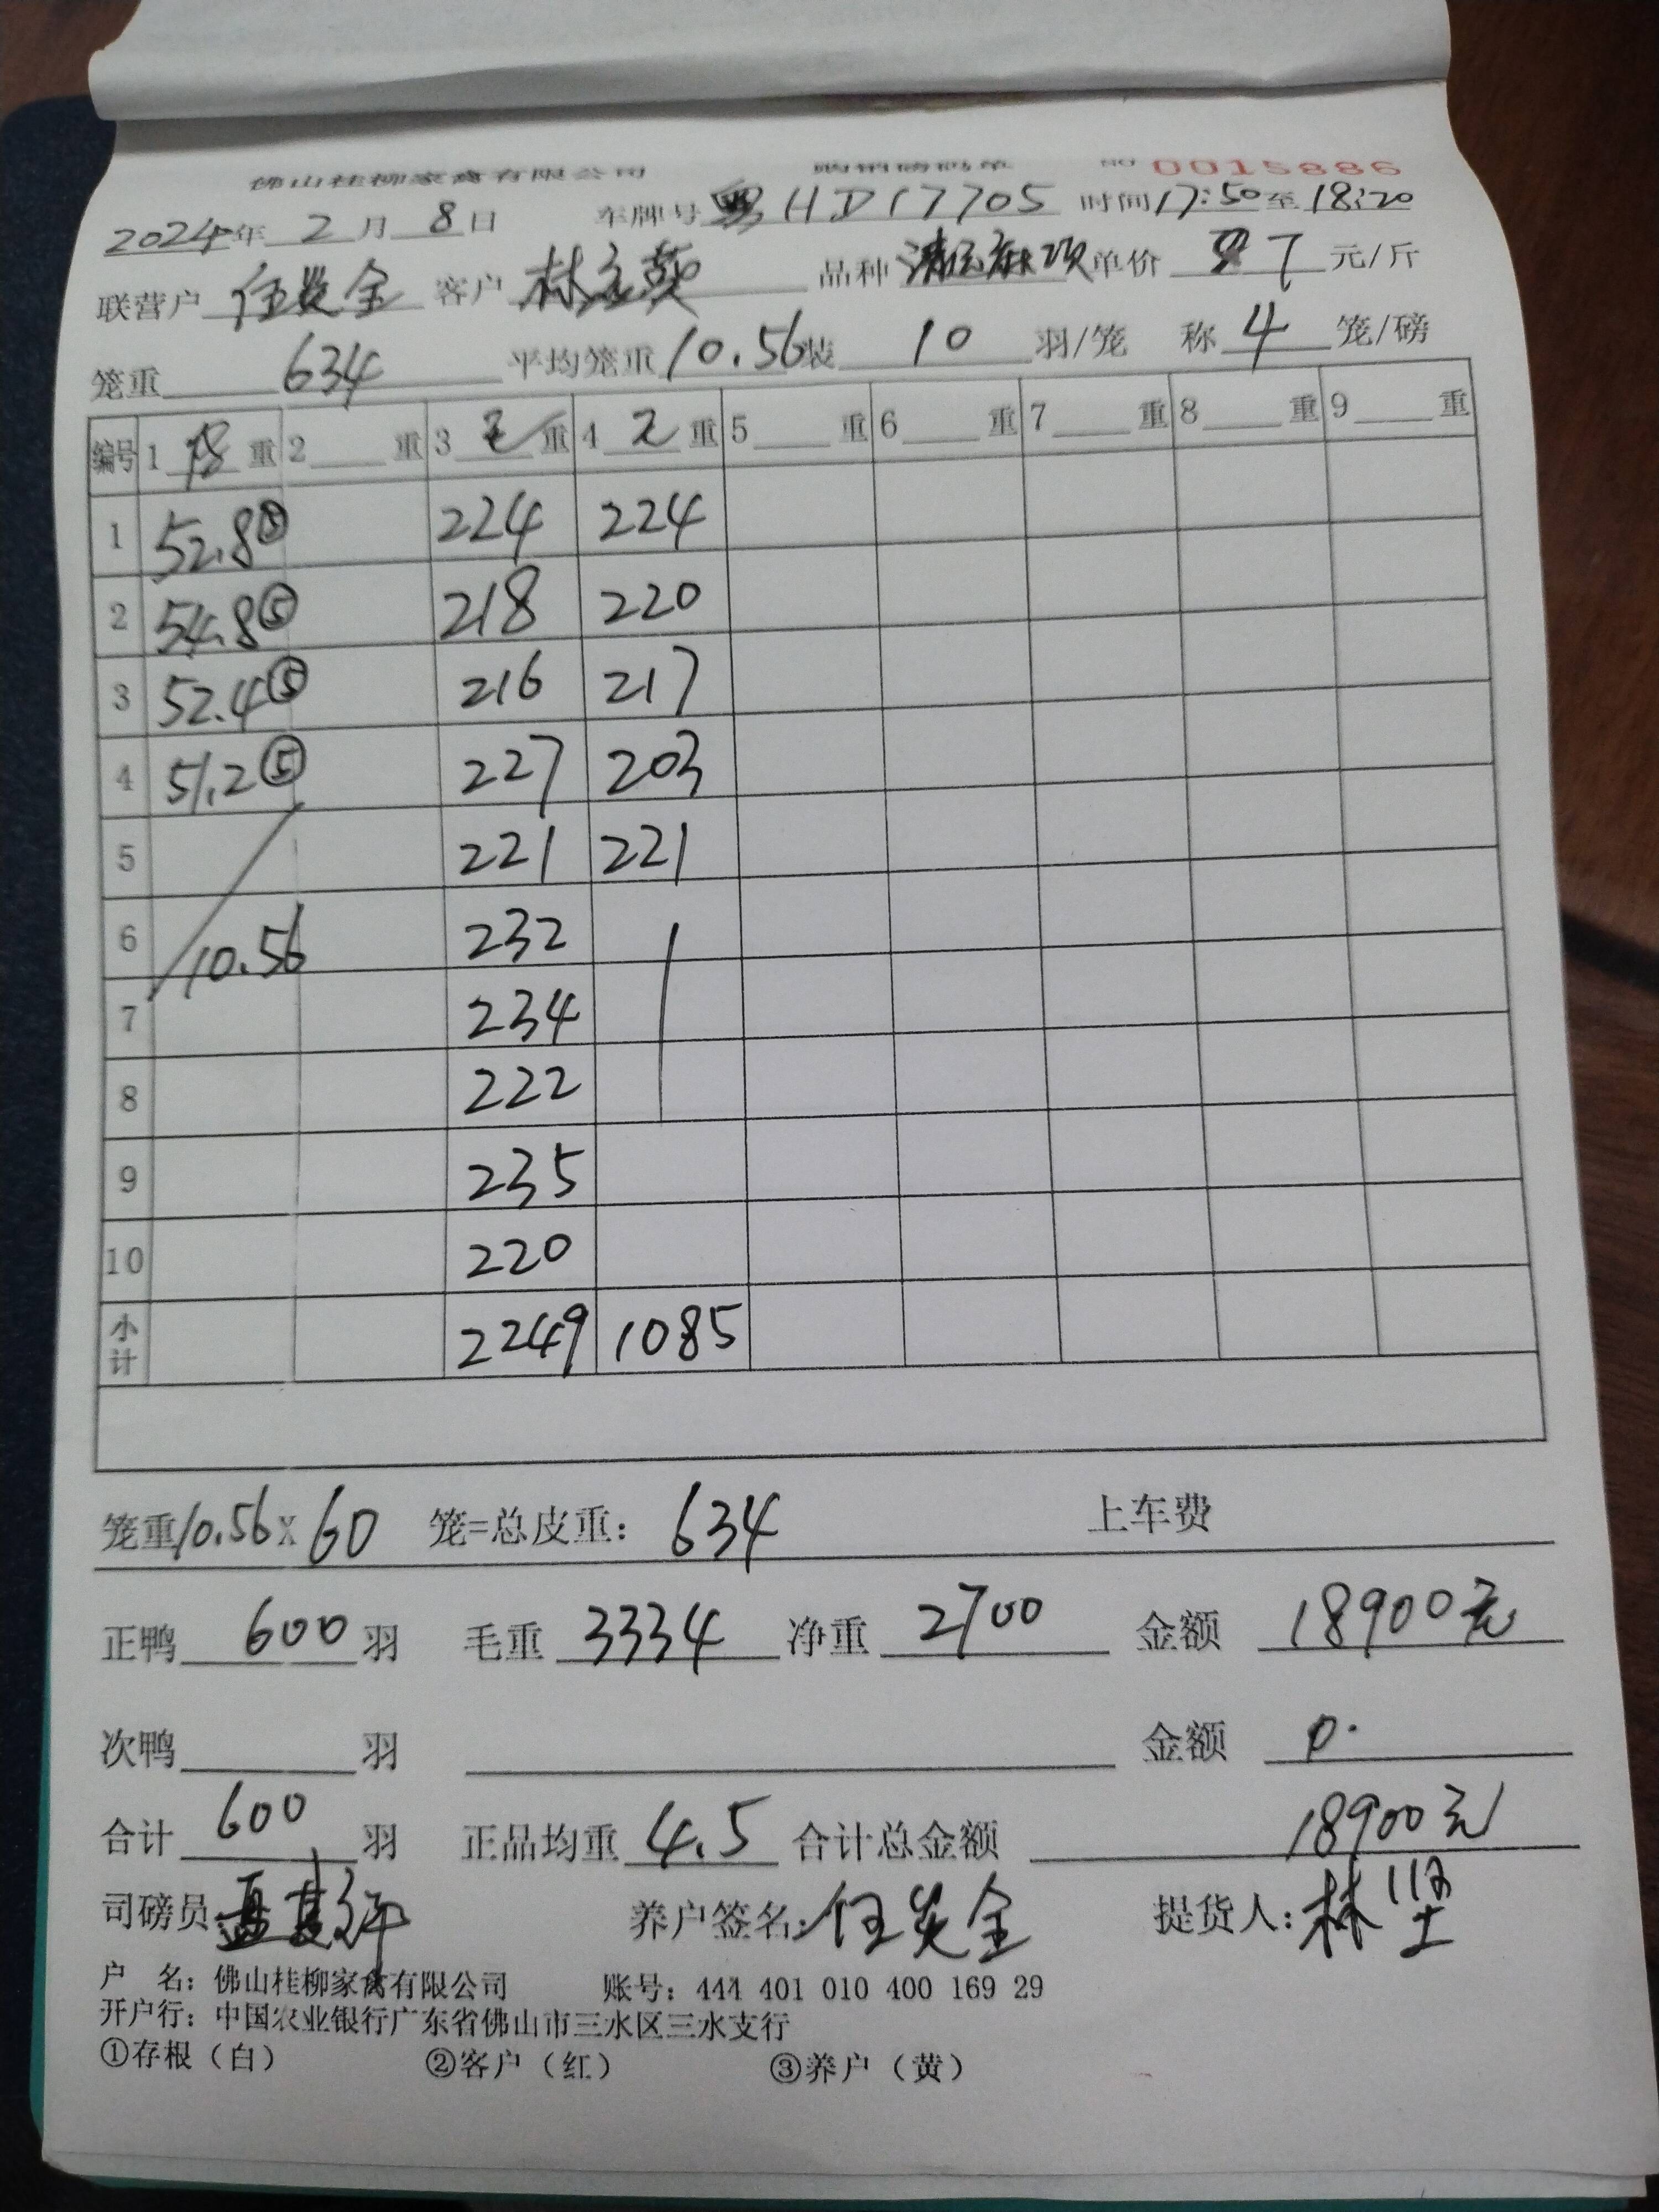 佛山桂柳家禽有限公司 购销磅码单 NO 0015886
2024年 2月 8日 车牌号 粤HD17705 时间17:50至18:20
联营户 任炎全 客户 林 品种 清远麻项 单价 7 元/斤
笼重 634 平均笼重10.56装 10 羽/笼 称 4 笼/磅
编号 1 皮重 2 重 3 毛重 4 毛重 5 重 6 重 7 重 8 重 9 重
1 52.8⑤ 224 224
2 54.8⑤ 218 220
3 52.4⑤ 216 217
4 51.2⑤ 227 203
5 221 221
6 10.56 232
7 234
8 222
9 235
10 220
小计 2249 1085
笼重10.56×60 笼=总皮重: 634 上车费
正鸭 600 羽 毛重 3334 净重 2700 金额 18900元
次鸭 羽 金额 0.
合计 600 羽 正品均重 4.5 合计总金额 18900元
司磅员 养户签名: 任炎全 提货人: 林坚
户 名: 佛山桂柳家禽有限公司 账号: 444 401 010 400 169 29
开户行: 中国农业银行广东省佛山市三水区三水支行
①存根(白) ②客户(红) ③养户(黄)